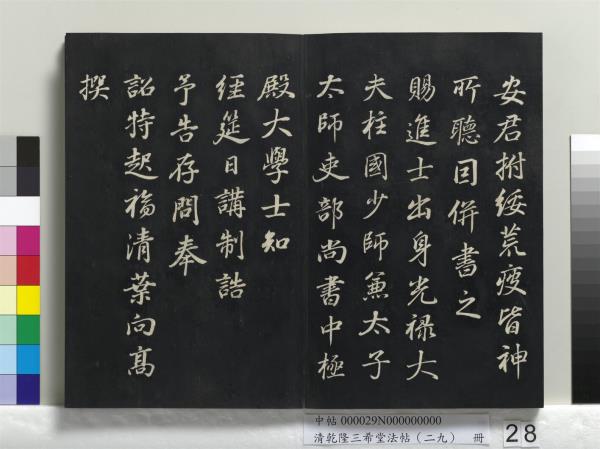 安君拊綏荒瘦皆神
所聽因併書之
賜進士出身光祿大
夫柱國少師兼太子
太師吏部尚書中極
殿大學士知
經筵日講制誥
予告存問奉
詔特起福清葉向高
撰
中帖 000029N000000000
清乾隆三希堂法帖(二九) 冊
28